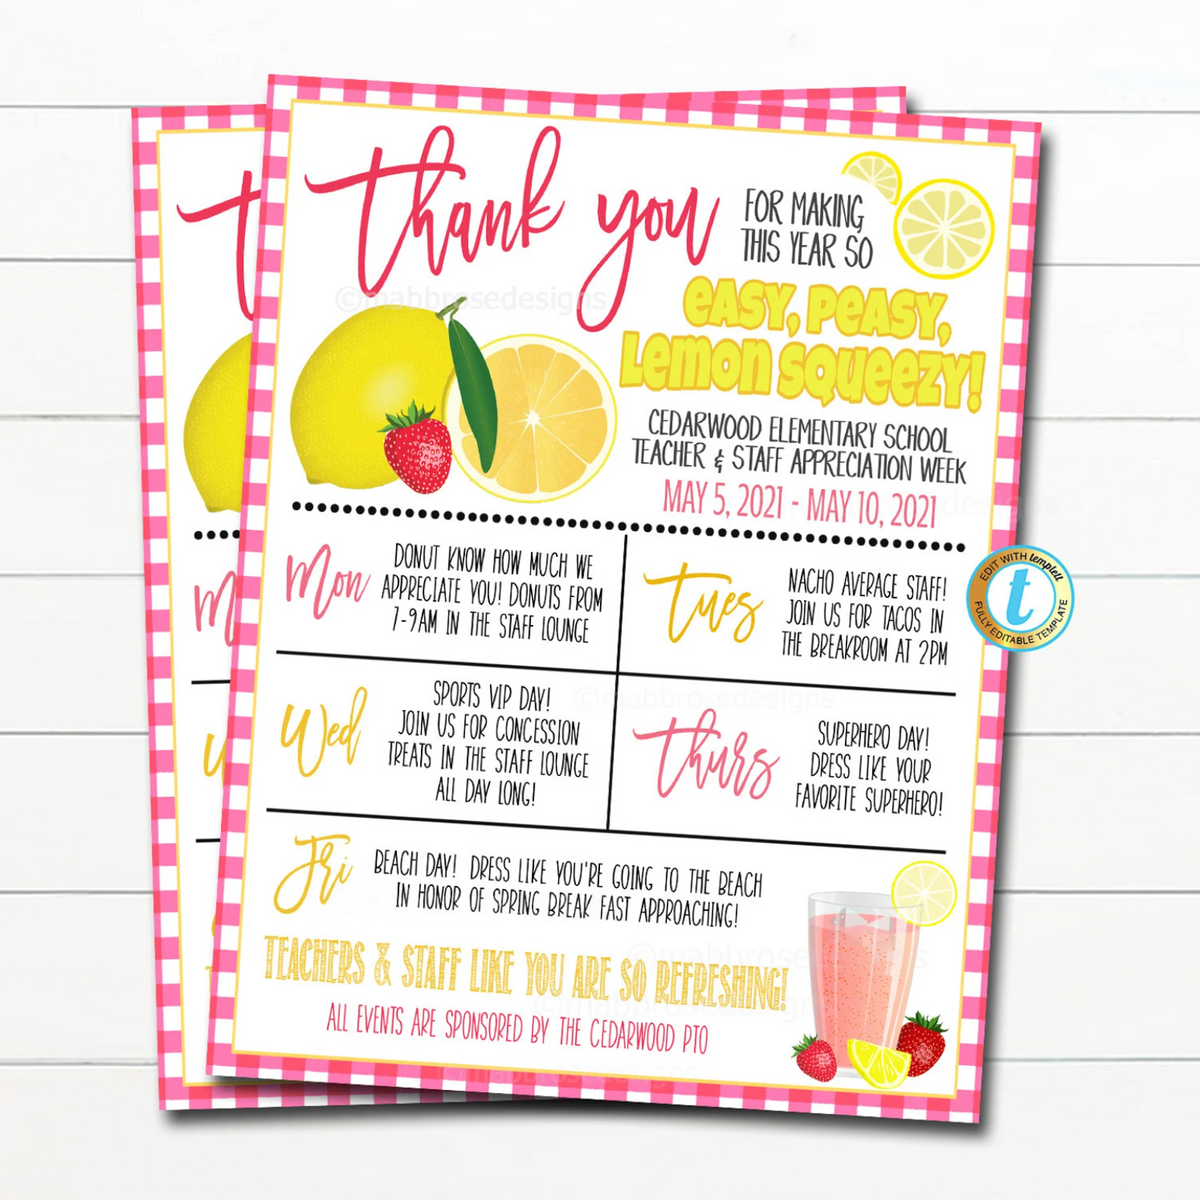 thank you
FOR MAKING
THIS YEAR SO
EASY, PEASY,
LEMON SQUEEZY!
CEDARWOOD ELEMENTARY SCHOOL
TEACHER & STAFF APPRECIATION WEEK
MAY 5, 2021 - MAY 10, 2021
Mon
DONUT KNOW HOW MUCH WE
APPRECIATE YOU! DONUTS FROM
7-9AM IN THE STAFF LOUNGE
Tues
NACHO AVERAGE STAFF!
JOIN US FOR TACOS IN
THE BREAKROOM AT 2PM
Wed
SPORTS VIP DAY!
JOIN US FOR CONCESSION
TREATS IN THE STAFF LOUNGE
ALL DAY LONG!
Thurs
SUPERHERO DAY!
DRESS LIKE YOUR
FAVORITE SUPERHERO!
Fri
BEACH DAY! DRESS LIKE YOU'RE GOING TO THE BEACH
IN HONOR OF SPRING BREAK FAST APPROACHING!
TEACHERS & STAFF LIKE YOU ARE SO REFRESHING!
ALL EVENTS ARE SPONSORED BY THE CEDARWOOD PTO
EDIT WITH templett
t
FULLY EDITABLE TEMPLATE
©mabbrosedesigns
©mabbrosedesigns
©mabbrosedesigns